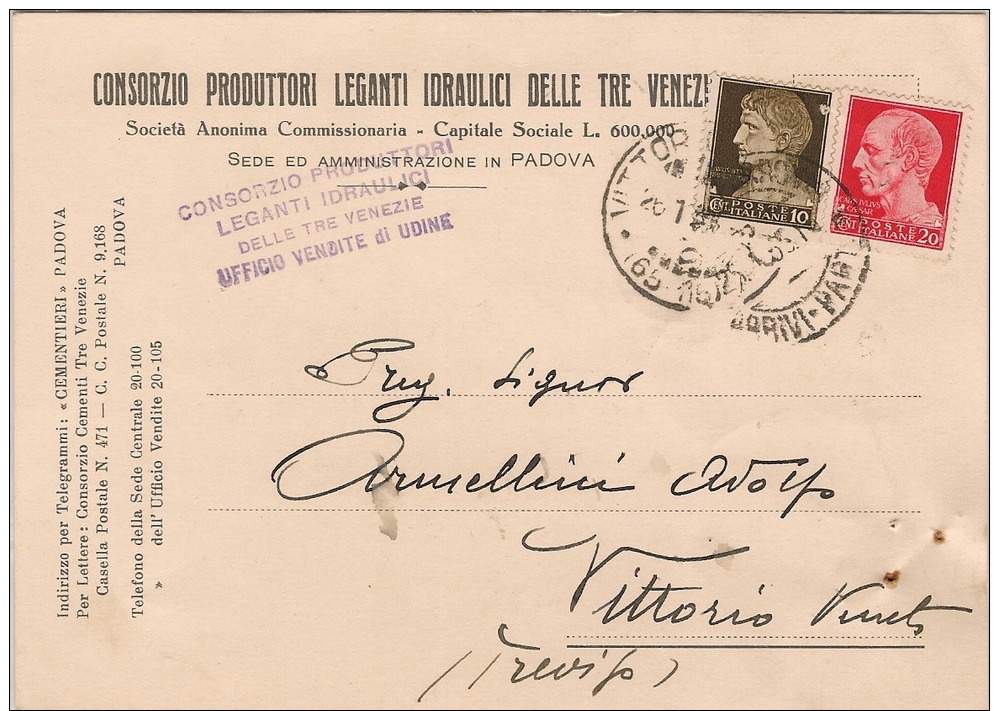 CONSORZIO PRODUTTORI LEGANTI IDRAULICI DELLE TRE VENEZI
Società Anonima Commissionaria - Capitale Sociale L. 600.000
SEDE ED AMMINISTRAZIONE IN PADOVA
CONSORZIO PRODUTTORI
LEGANTI IDRAULICI
DELLE TRE VENEZIE
UFFICIO VENDITE di UDINE
POSTE
CENT. ITALIANE 10
CAIVS IVLIVS
CAESAR
POSTE
CENT. ITALIANE 20
VITTOR
ARRIVI-PART
Indirizzo per Telegrammi: «CEMENTIERI» PADOVA
Per Lettere: Consorzio Cementi Tre Venezie
Casella Postale N. 471 — C. C. Postale N. 9,168
PADOVA
Telefono della Sede Centrale 20-100
» dell' Ufficio Vendite 20-105
Preg. Signor
Armellini Adolfo
Vittorio Veneto
(Treviso)